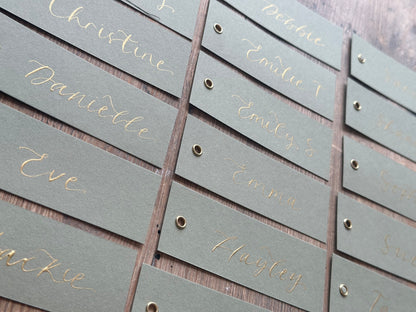 Christine
Danielle
Eve
Jackie
Debbie
Emilie T
Emily S
Emma
Hayley